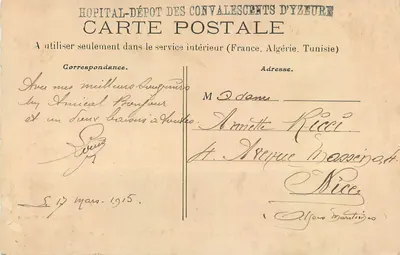 HOPITAL-DÉPOT DES CONVALESCENTS D'YZEURE
CARTE POSTALE
A utiliser seulement dans le service intérieur (France, Algérie, Tunisie)
Correspondance.
Adresse.
Avec mes meilleurs
un Amical Bonjour
et un doux baisers à toutes
Louis
le 17 mars 1915.
Madame
Annette Ricci
4 Avenue Massena 4
Nice
Alpes Maritimes